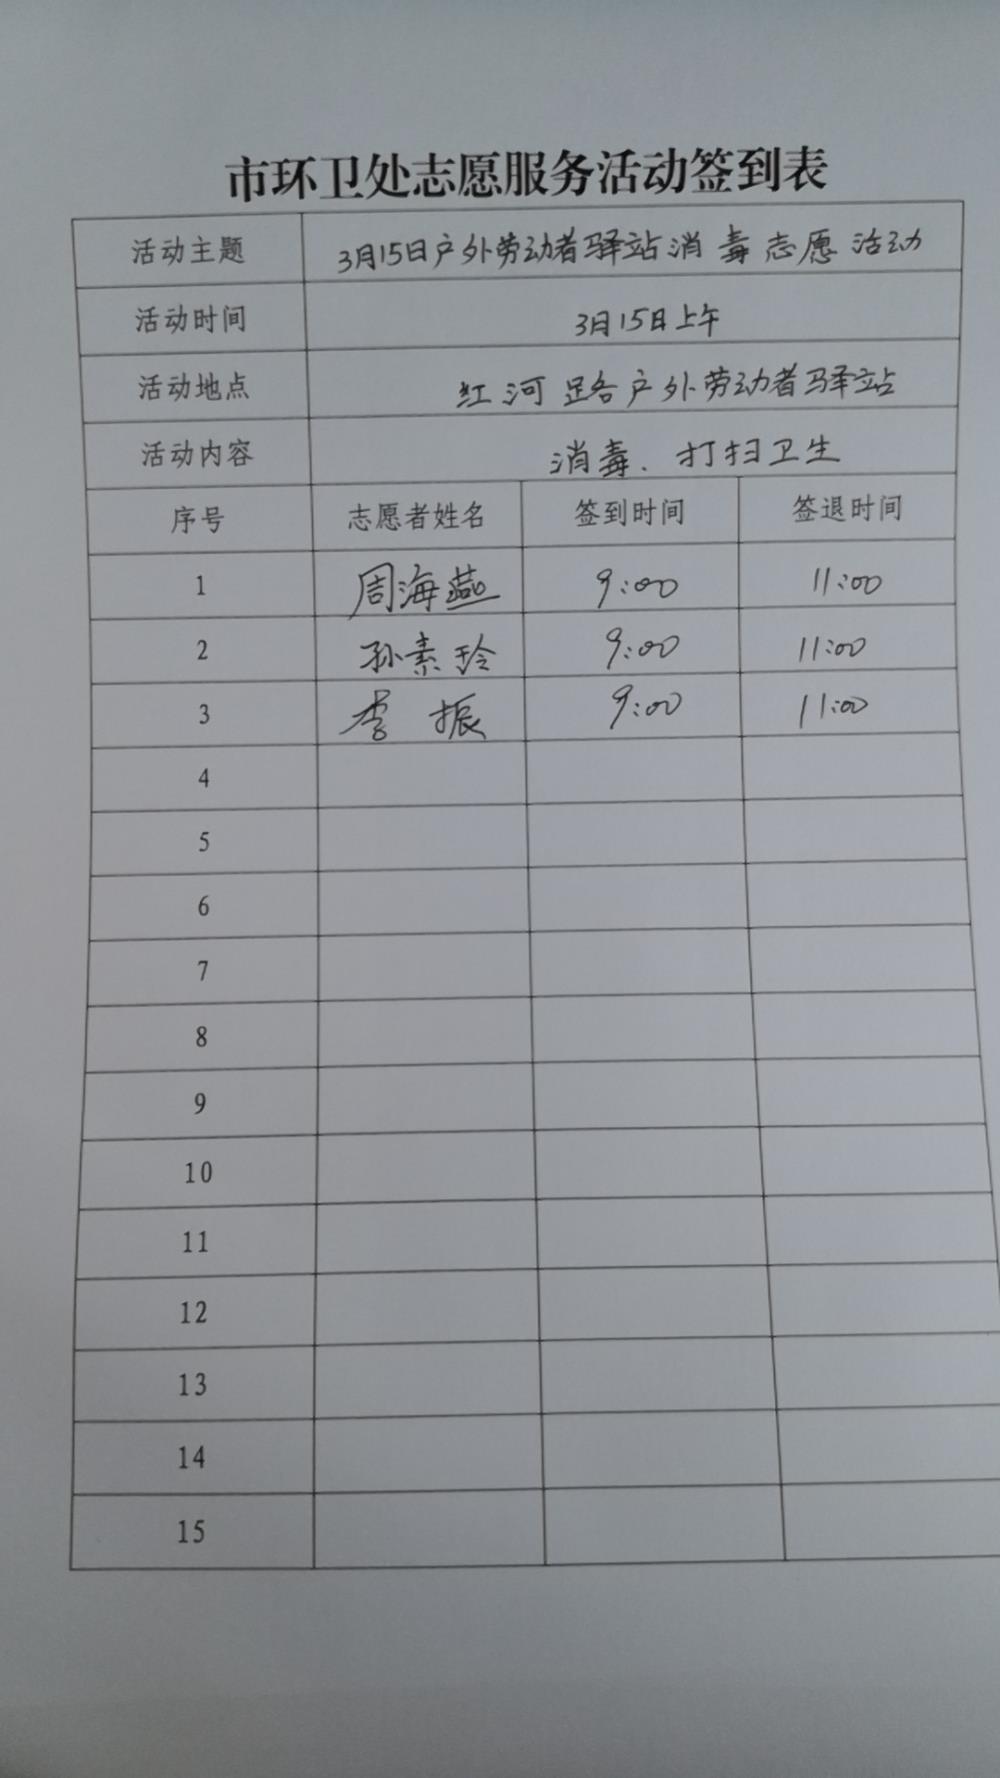 市环卫处志愿服务活动签到表
活动主题 3月15日户外劳动者驿站消毒志愿活动
活动时间 3月15日上午
活动地点 红河路户外劳动者驿站
活动内容 消毒、打扫卫生
序号 志愿者姓名 签到时间 签退时间
1 周海燕 9:00 11:00
2 孙素玲 9:00 11:00
3 李振 9:00 11:00
4
5
6
7
8
9
10
11
12
13
14
15